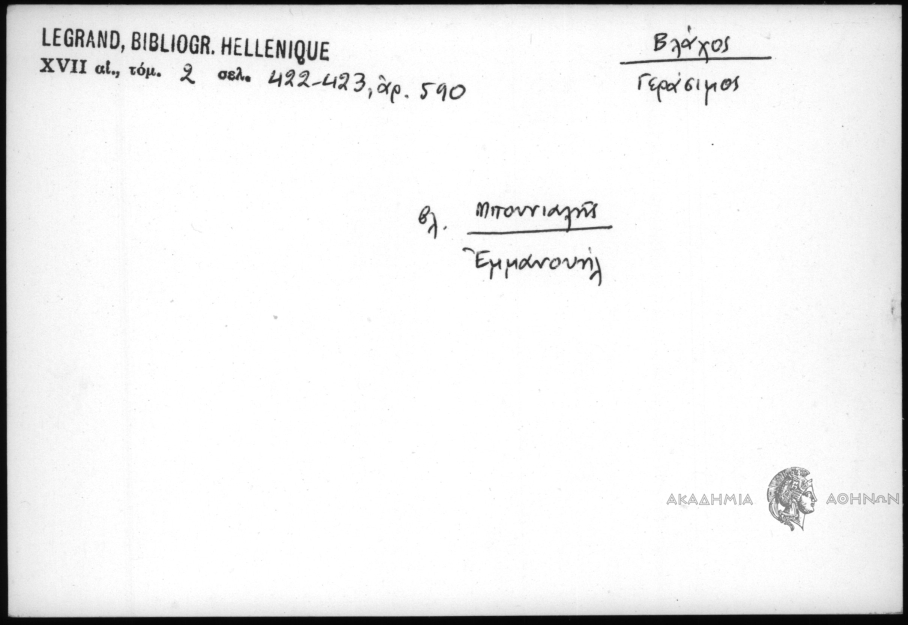 LEGRAND, BIBLIOGR. HELLENIQUE
XVII αἰ., τόμ. 2 σελ. 422-423, ἀρ. 590
Βλάχος
Γεράσιμος
βλ. Μπουνιαλῆς
Ἐμμανουήλ
ΑΚΑΔΗΜΙΑ ΑΘΗΝΩΝ